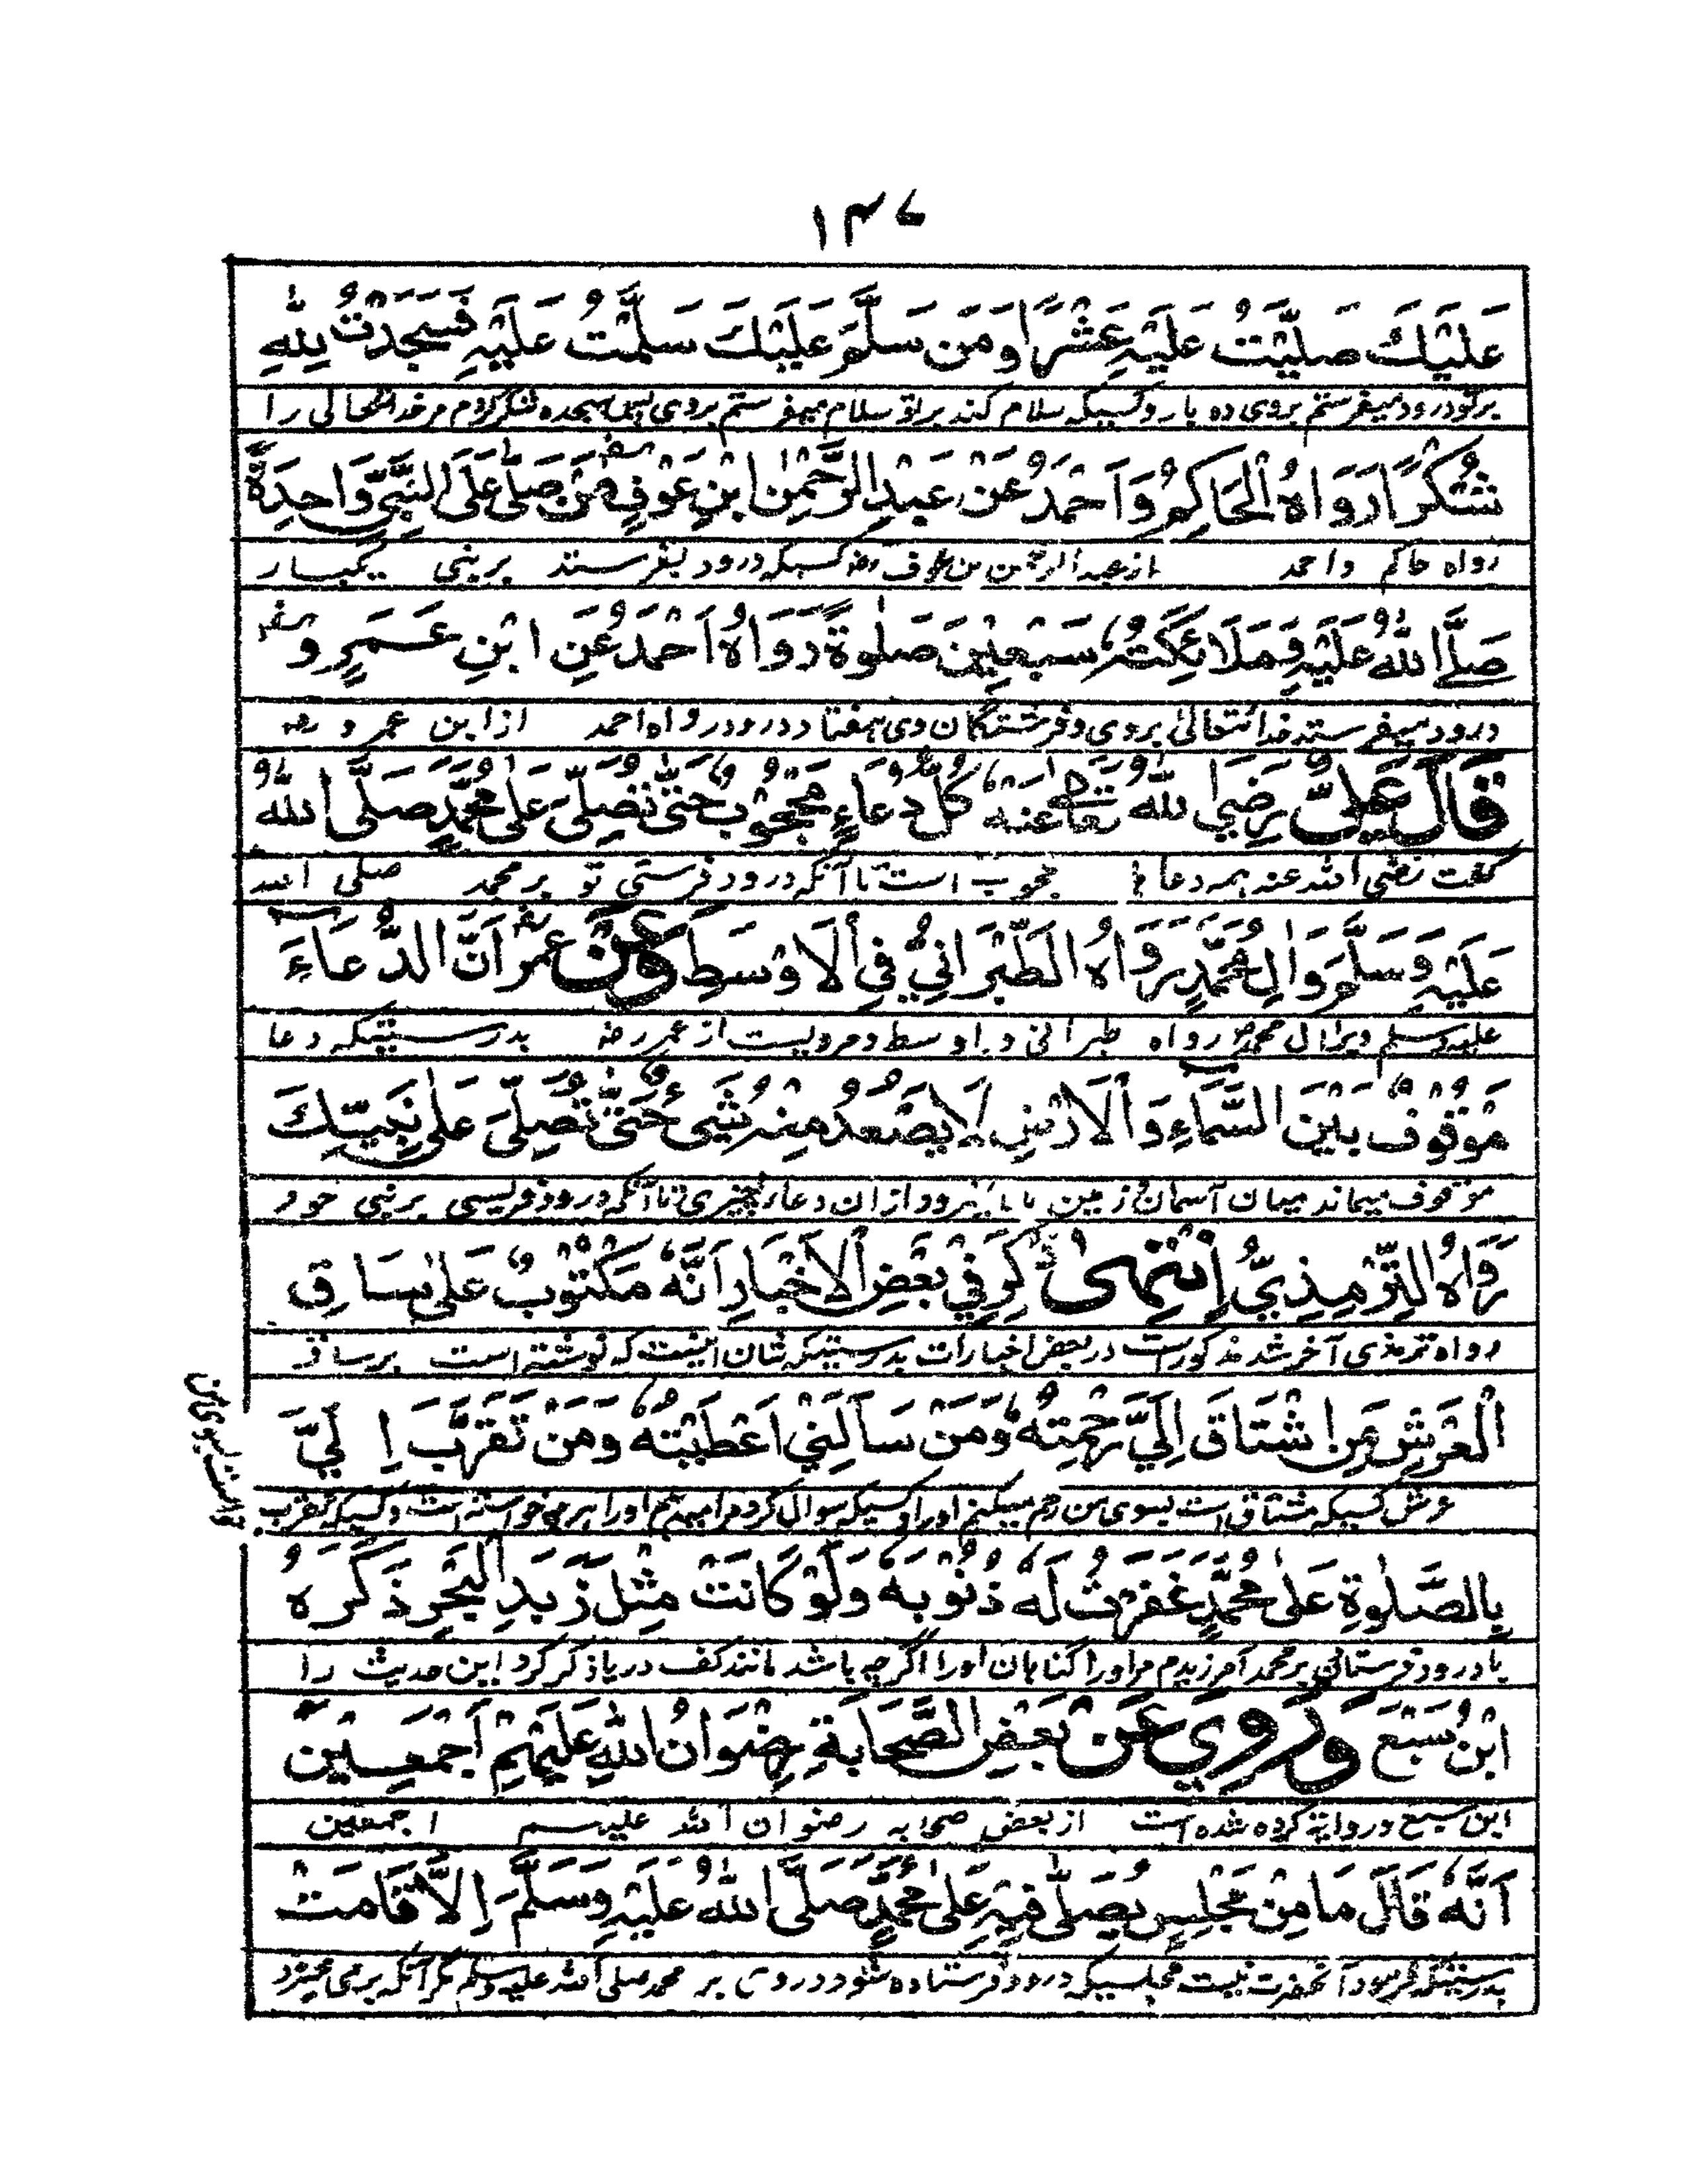 ۱۳۷
عَلَيْكَ صَلَّيْتُ عَلَيْهِ عَشْرًا وَمَنْ سَلَّمَ عَلَيْكَ سَلَّمْتُ عَلَيْهِ فَسَجَدْتُ لِلّٰهِ
بر تو درود میفرستم بروی ده بار و کسیکه سلام کند بر تو سلام میفرستم بروی پس سجده شکر کردم مر خدا تعالی را
شُكْرًا رَوَاهُ الْحَاكِمُ وَاَحْمَدُ عَنْ عَبْدِ الرَّحْمٰنِ ابْنِ عَوْفٍ مَنْ صَلّٰى عَلَى النَّبِيِّ وَاحِدَةً
رواه حاکم واحمد از عبد الرحمن بن عوف رضه کسیکه درود بفرستد بر نبی یکبار
صَلَّى اللّٰهُ عَلَيْهِ وَمَلَائِكَتُهُ سَبْعِيْنَ صَلٰوةً رَوَاهُ اَحْمَدُ عَنِ ابْنِ عَمْرٍو
درود میفرستد خدا تعالی بروی و فرشتگان وی هفتاد درود رواه احمد از ابن عمرو رضه
قَالَ عَلِيٌّ رَضِيَ اللّٰهُ تَعَالٰى عَنْهُ كُلُّ دُعَاءٍ مَحْجُوْبٌ حَتّٰى تُصَلِّيَ عَلٰى مُحَمَّدٍ صَلَّى اللّٰهُ
گفت رضی الله عنه همه دعا محجوب است تا آنکه درود فرستی تو بر محمد صلی الله
عَلَيْهِ وَسَلَّمَ وَاٰلِ مُحَمَّدٍ رَوَاهُ الطَّبَرَانِيُّ فِي الْاَوْسَطِ وَعَنْ عُمَرَ اَنَّ الدُّعَاءَ
علیه وسلم وبر آل محمد رواه طبرانی در اوسط ومرویست از عمر رضه بدرستیکه دعا
مَوْقُوْفٌ بَيْنَ السَّمَاءِ وَالْاَرْضِ لَا يَصْعَدُ مِنْهُ شَيْءٌ حَتّٰى تُصَلِّيَ عَلٰى نَبِيِّكَ
موقوف میماند میان آسمان و زمین بالا نرود ازان دعا چیزی تا آنکه درود فرستی بر نبی خود
رَوَاهُ التِّرْمِذِيُّ اِنْتَهٰى ذُكِرَ فِيْ بَعْضِ الْاَخْبَارِ اَنَّهٗ مَكْتُوْبٌ عَلٰى سَاقِ
رواه ترمذی آخر شد مذکور است در بعض اخبارات بدرستیکه شان اینست که نوشته است بر ساق
الْعَرْشِ مَنِ اشْتَاقَ اِلَيَّ رَحِمْتُهٗ وَمَنْ سَاَلَنِيْ اَعْطَيْتُهٗ وَمَنْ تَقَرَّبَ اِلَيَّ
عرش کسیکه مشتاق است بسوی من رحم میکنم اورا و کسیکه سوال کرد مرا میدهم اورا هر چه خواسته است و کسیکه تقرب
بِالصَّلٰوةِ عَلٰى مُحَمَّدٍ غَفَرْتُ لَهٗ ذُنُوْبَهٗ وَلَوْ كَانَتْ مِثْلَ زَبَدِ الْبَحْرِ ذَكَرَهُ
با درود فرستادن بر محمد آمرزیدم مر اورا گناهان اورا اگرچه باشد مانند کف دریا ذکر کرد این حدیث را
ابْنُ سَبُعٍ وَرُوِيَ عَنْ بَعْضِ الصَّحَابَةِ رِضْوَانُ اللّٰهِ عَلَيْهِمْ اَجْمَعِيْنَ
ابن سبع و روایة کرده شده است از بعض صحابه رضوان الله علیهم اجمعین
اَنَّهٗ قَالَ مَا مِنْ مَجْلِسٍ يُصَلّٰى فِيْهِ عَلٰى مُحَمَّدٍ صَلَّى اللّٰهُ عَلَيْهِ وَسَلَّمَ اِلَّا قَامَتْ
بدرستیکه فرمود آنحضرت نیست مجلسیکه درود فرستاده شود در وی بر محمد صلی الله علیه وسلم مگر آنکه بر می خیزد